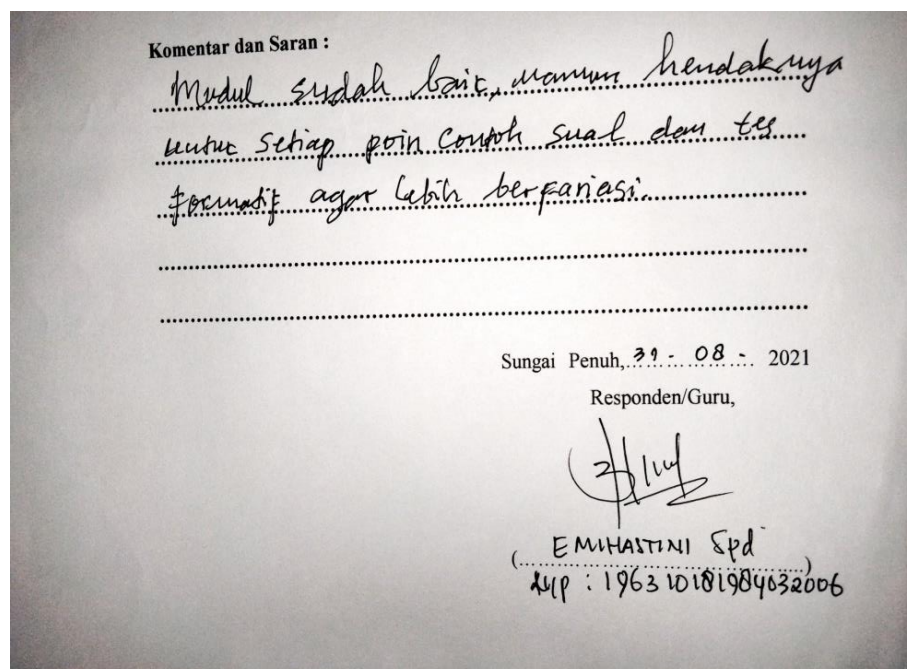 Komentar dan Saran :
Modul sudah baik, namun hendaknya
untuk setiap poin contoh soal dan tes
formatif agar lebih berfariasi.
Sungai Penuh, 31 - 08 - 2021
Responden/Guru,
(EMIHASTINI Spd)
Nip : 196310181984032006